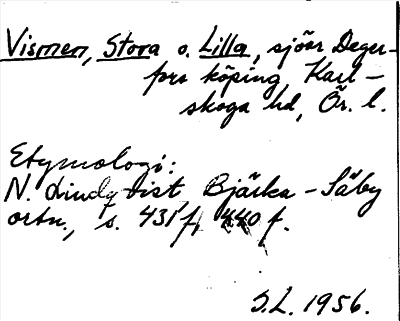 Vismen, Stora o. Lilla, sjöar Deger-
fors köping, Karl-
skoga hd, Ör. l.
Etymologi:
N. Lindqvist, Bjärka-Säby
ortn., s. 431 f, 440 f.
S.L. 1956.